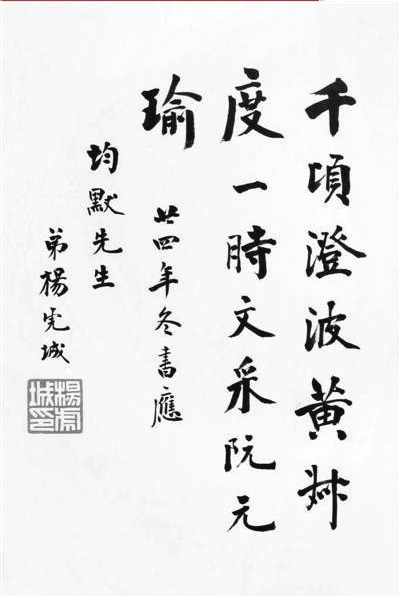 千頃澄波黃叔
度一時文采阮元
瑜
廿四年冬書應
均默先生
弟楊虎城
楊虎
城印